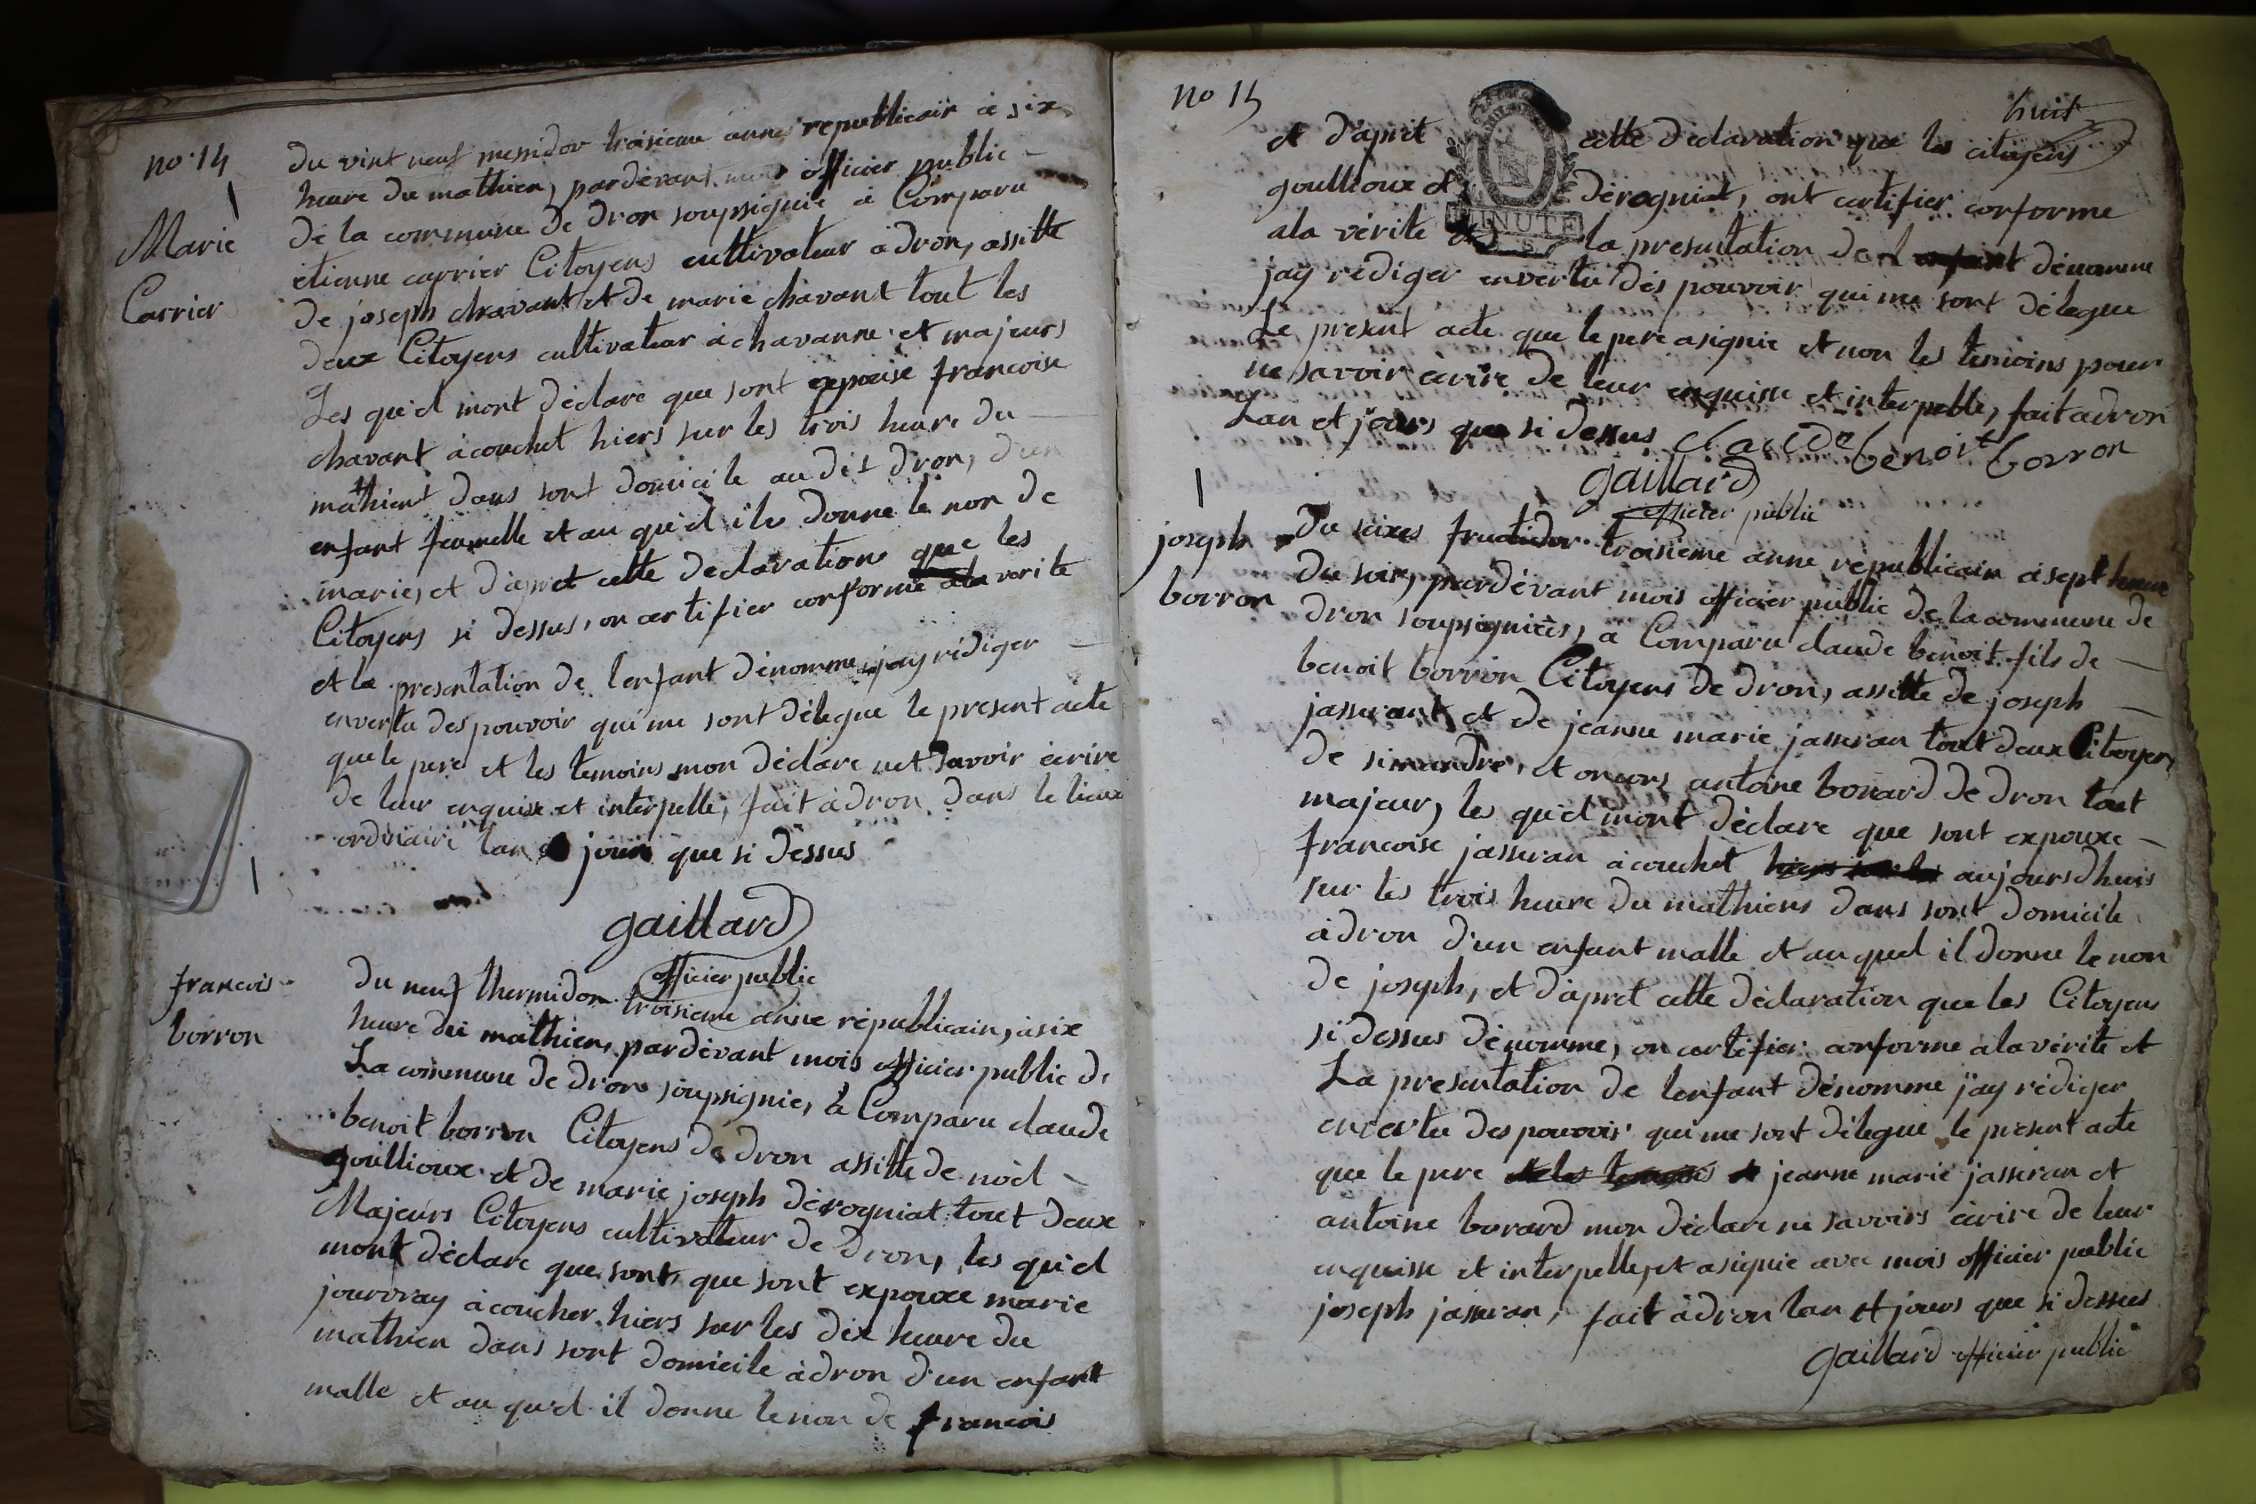 no. 14
Marie
Carrier
du vint neuf messidor troisieme anne republicain à six
heure du mathien, pardevant mois officier public
de la commune de dron soupsignié à Comparu
etienne carrier Citoyens cultivateur à dron, assitte
de joseph chavant et de marie chavant tout les
deux Citoyens cultivateur à chavanne et majeurs
Les qu'el mont déclaré que sont epouise francoise
chavant àcouchet hiers sur les trois heure du
mathient dans sont domicile au dit dron, d'un
enfant fumelle et au qu'el il donne le non de
marie, et d'apret cette declaration que les
Citoyens si dessus, on certifier conforme ala verite
et la presentation de lenfant dénomme jay rédiger
envertu des pouvoir qui me sont délegue le present acte
que le pere et les temoins mon déclare net savoir écrire
de leur enquise et interpellé, fait àdron dans le lieux
ordinaire lan et jours que si dessus
gaillard
officier public
francois
borron
du neuf thermidor troisieme anne républicain, àsix
heure du mathiens pardévant mois officier public de
La commune de dron soupsignie, à Comparu claude
benoit borron Citoyens de dron assitte de noel
goullioux et de marie joseph dérogniat tout deux
Majeurs Citoyens cultivatteur de dron, les qu'el
mont déclare que sont que sont expouxe marie
jourdray àcoucher hiers sur les dix heure du
mathien dans sont domicile àdron d'un enfant
malle et au qu'el il donne le non de francois
no 15
huit
et d'aprit cette déclaration que les citoyens
goullioux et dérogniat, ont certifier conforme
ala vérite et la presentation de l enfant dénomme
MINUTE
jay rédiger envertu des pouvoir qui me sont délegue
Le present acte que le pere asignie et non les temoins pour
ne savoir écrire de leur enquisse et interpelle, fait adron
Lan et jours que si dessus claude benoit borron
gaillard
officier public
joseph
borron
du seixes fructidor troisieme anne républicain àsept heure
du soir, pardévant mois officier public de la commune de
dron soupsigniés, à Comparu claude benoit fils de
benoit borron Citoyens de dron, assitte de joseph
jasseran et de jeanne marie jasseran tout deux Citoyen
de simandre, et oncors antoine borard de dron tout
majeur, les qu'el mont déclare que sont expouxe
francoise jasseran àcouchet hiers sur les aujoursdhuis
sur les trois heure du mathiens dans sont domicile
àdron d'un enfant malle et au quel il donne le non
de joseph, et d'apret cette déclaration que les Citoyens
si dessus dénomme, on certifier conforme ala vérite et
La presentation de lenfant dénomme jay rédiger
envertu des pouvoir qui me sont délegue le present acte
que le pere et les temoins et jeanne marie jasseran et
antoine borard mon déclare ne savoirs écrire de leur
enquisse et interpelle, et asignie avec mois officier public
joseph jasseran, fait àdron lan et jours que si dessus
gaillard officier public